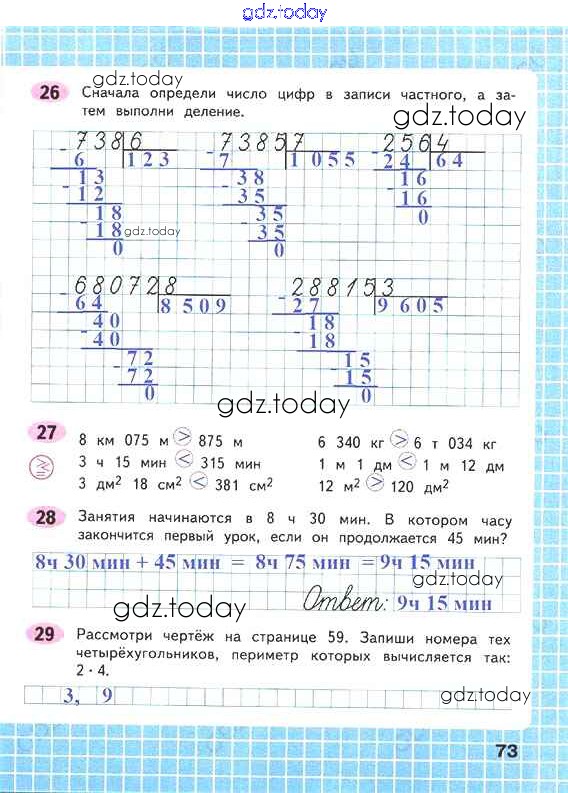 gdz.today
26 Сначала определи число цифр в записи частного, а за-
тем выполни деление.
gdz.today
gdz.today
- 738 6 - 7385 7 - 256 4
6 123 7 1 055 24 64
- 13 - 38 - 16
- 12 - 35 - 16
- 18 - 35 0
- 18 - 35
0 0
gdz.today
- 68072 8 - 28815 3
64 8 509 - 27 9 605
- 40 - 18
- 40 - 18
- 72 - 15
- 72 - 15
0 0
gdz.today
27
8 км 075 м > 875 м 6 340 кг > 6 т 034 кг
3 ч 15 мин < 315 мин 1 м 1 дм < 1 м 12 дм
3 дм² 18 см² < 381 см² 12 м² > 120 дм²
28 Занятия начинаются в 8 ч 30 мин. В котором часу
закончится первый урок, если он продолжается 45 мин?
8ч 30 мин + 45 мин = 8ч 75 мин = 9ч 15 мин
gdz.today
Ответ: 9ч 15 мин
gdz.today
29 Рассмотри чертёж на странице 59. Запиши номера тех
четырёхугольников, периметр которых вычисляется так:
2 · 4.
3, 9
gdz.today
73